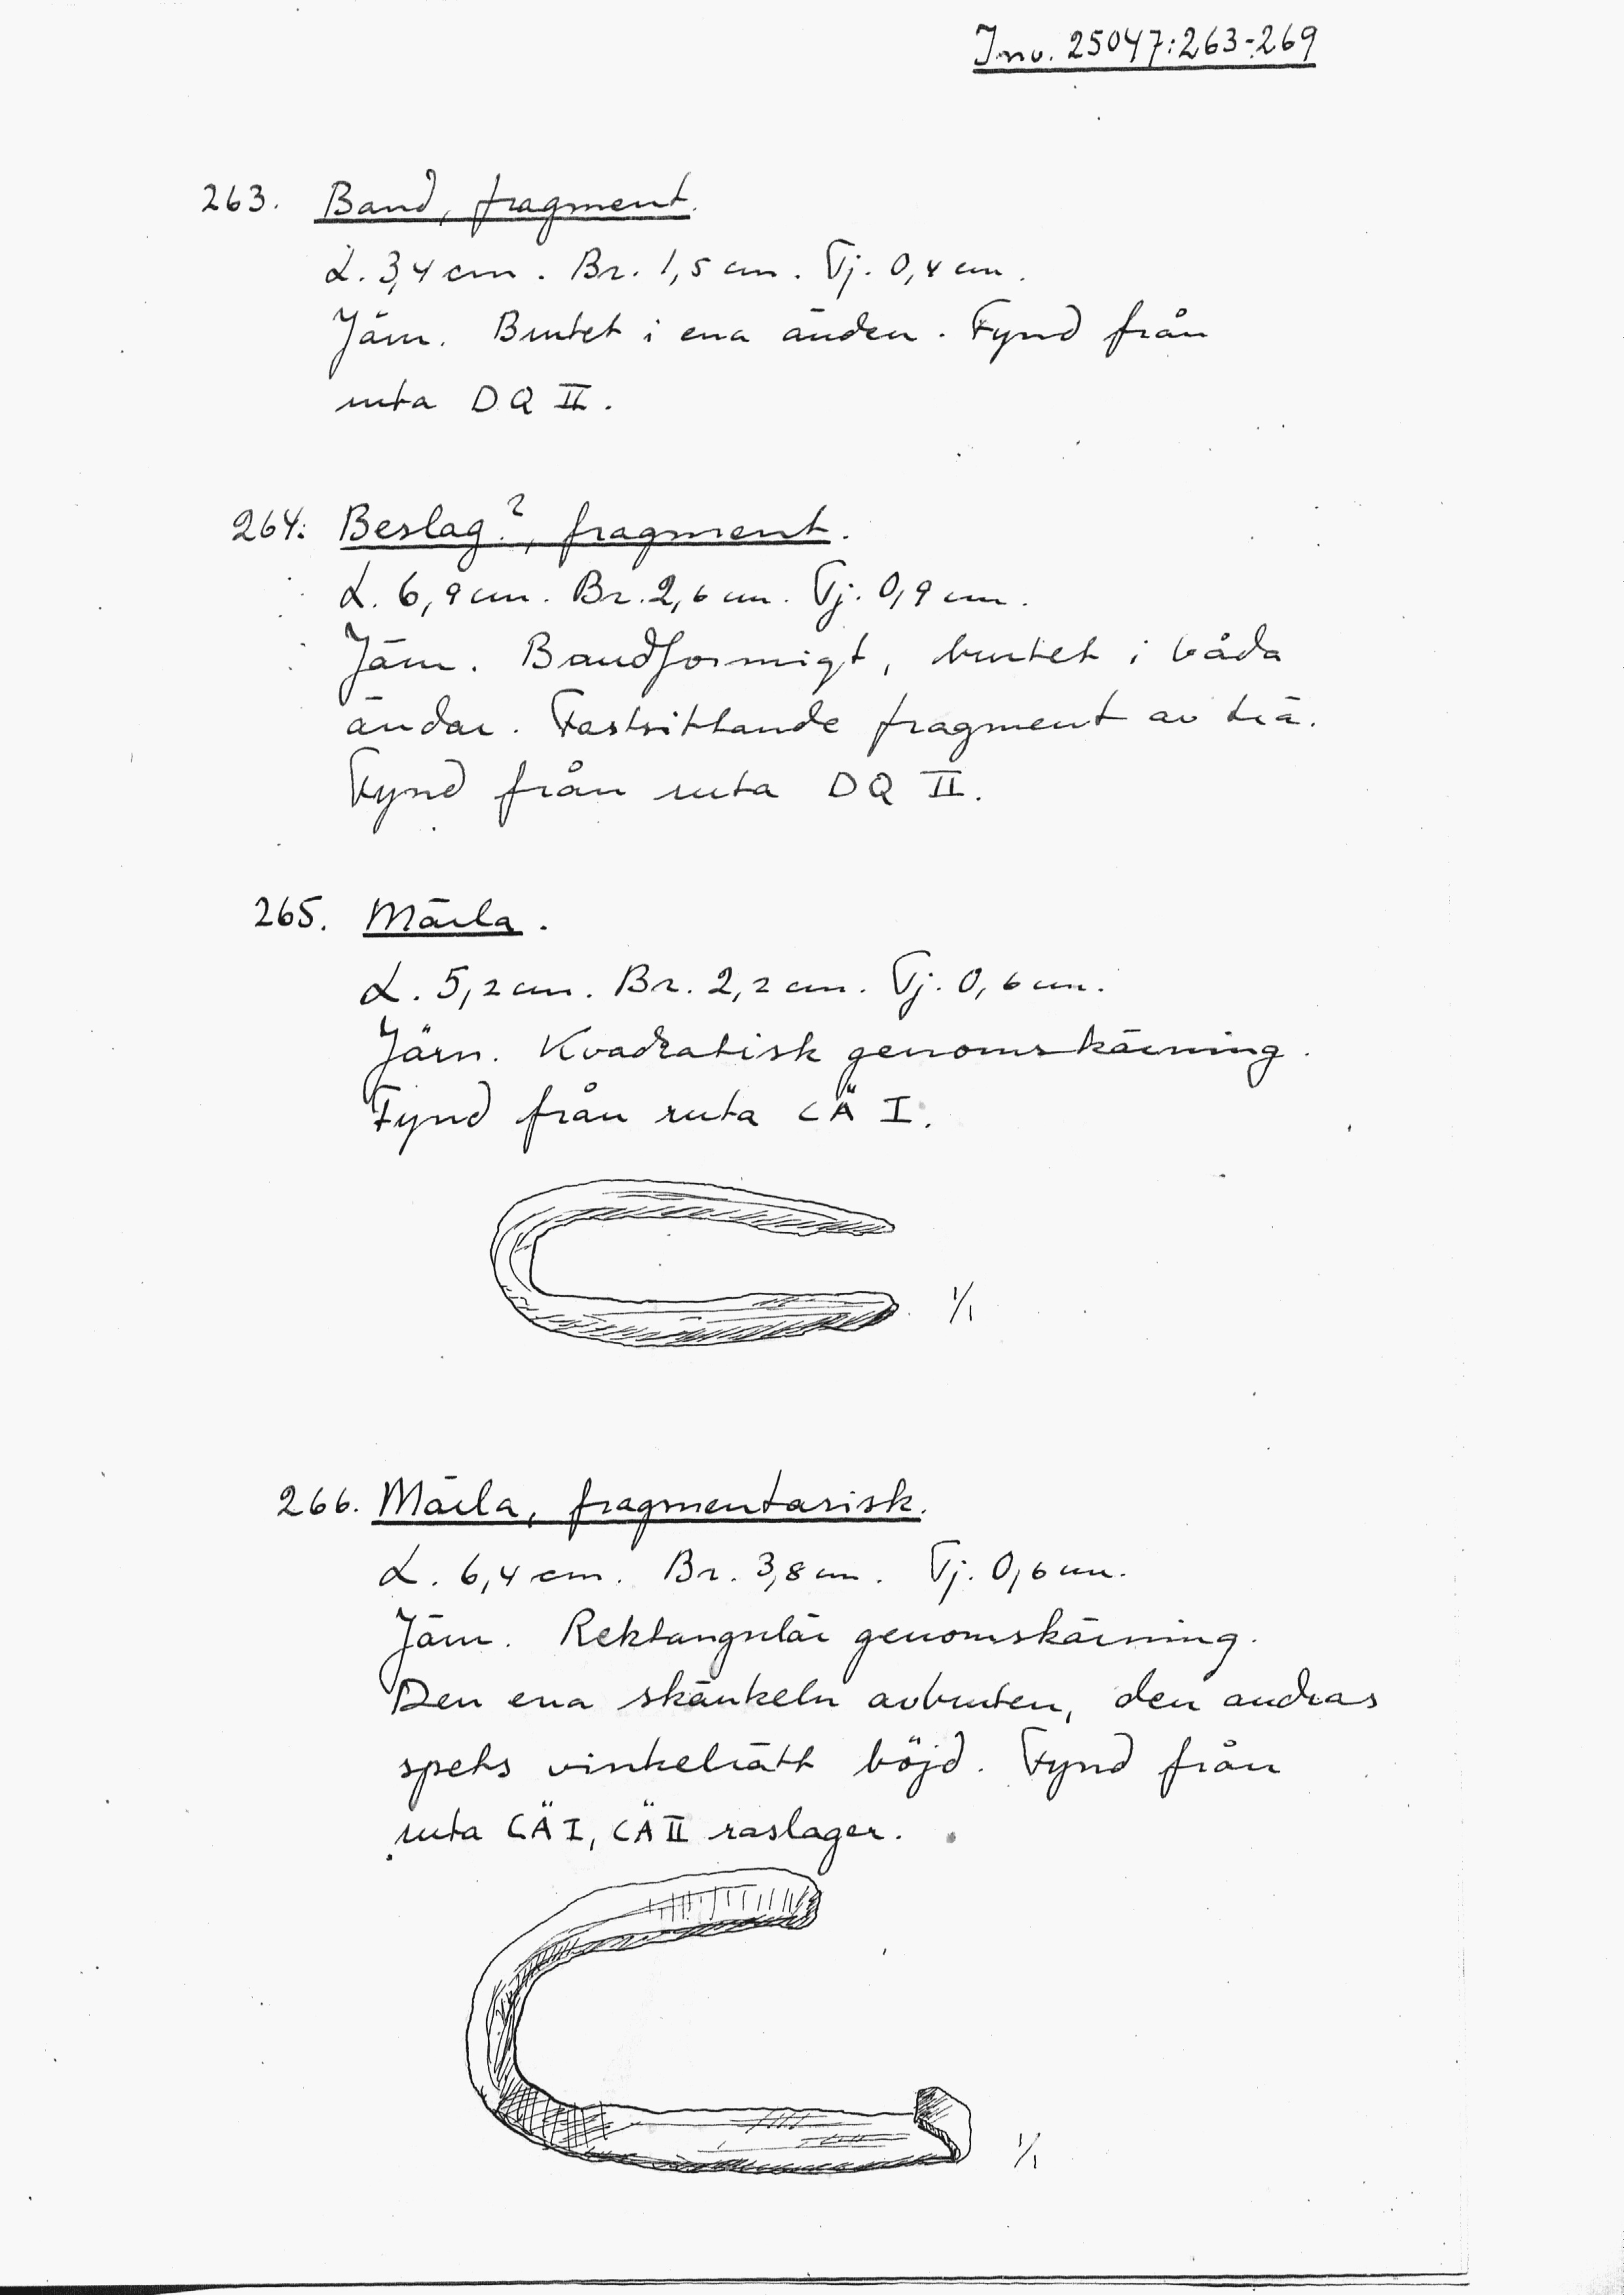 Inv. 25047:263-269
263. Band, fragment.
L. 3,4 cm. Br. 1,5 cm. Tj. 0,4 cm.
Järn. Brutet i ena änden. Fynd från
ruta DQ II.
264. Beslag?, fragment.
L. 6,9 cm. Br. 2,6 cm. Tj. 0,9 cm.
Järn. Bandformigt, brutet i båda
ändar. Fastsittande fragment av trä.
Fynd från ruta DQ II.
265. Märla.
L. 5,2 cm. Br. 2,2 cm. Tj. 0,6 cm.
Järn. Kvadratisk genomskärning.
Fynd från ruta CÄ I.
1/1
266. Märla, fragmentarisk.
L. 6,4 cm. Br. 3,8 cm. Tj. 0,6 cm.
Järn. Rektangulär genomskärning.
Den ena skänkeln avbruten, den andras
spets vinkelrätt böjd. Fynd från
ruta CÄ I, CÄ II raslager.
1/1